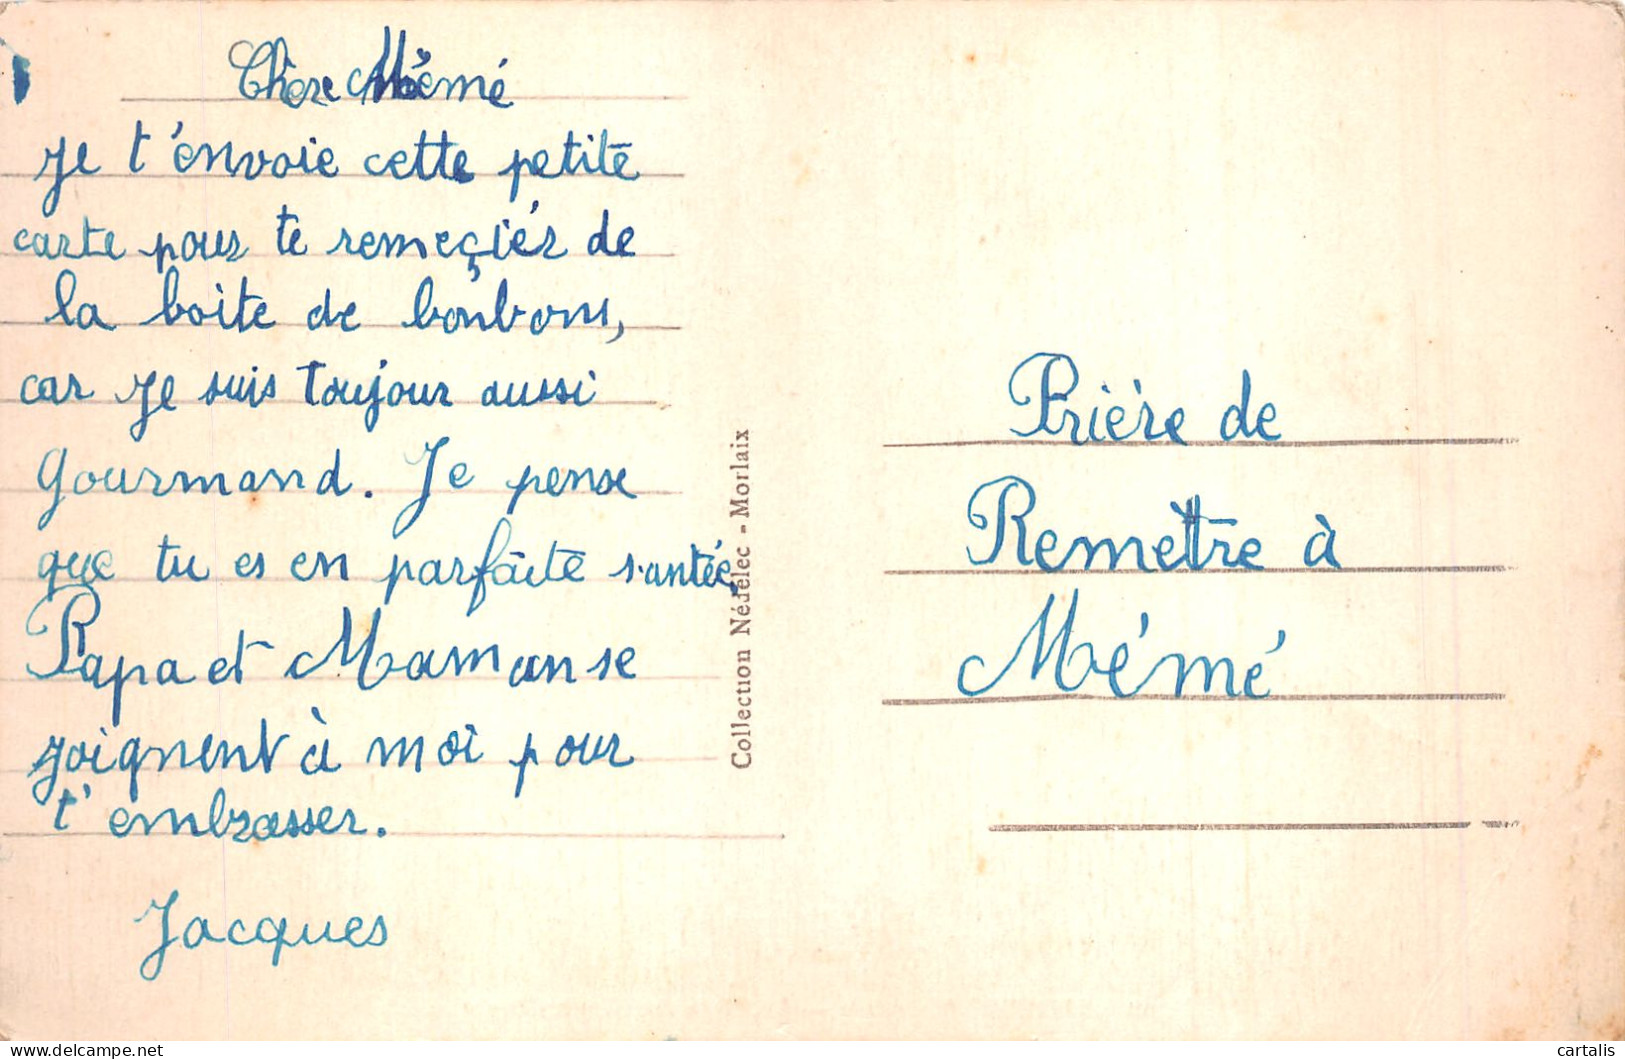 Chère Mémé
Je t'envoie cette petite
carte pour te remeçiér de
la boite de bonbons,
car je suis toujour aussi
gourmand. Je pense
que tu es en parfaite santée,
Papa et Maman se
joignent à moi pour
t'embrasser.
Jacques
Collection Nédélec - Morlaix
Prière de
Remettre à
Mémé
delcampe.net
cartalis